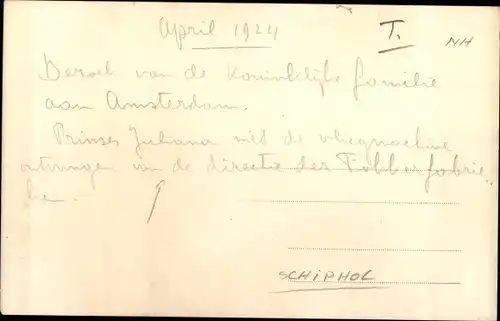 April 1924
T.
NH
Bezoek van de Koninklijke familie
aan Amsterdam.
Prinses Juliana met de vliegmachine
ontvangen van de directie der Fokkerfabrie
ken.
SCHIPHOL